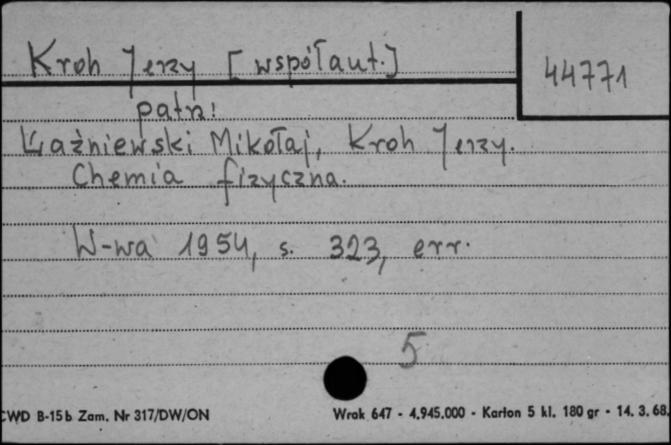 Kroh Jerzy [współaut.]
44771
patrz:
Łaźniewski Mikołaj, Kroh Jerzy.
Chemia fizyczna.
W-wa 1954, s. 323, err.
5
CWD B-15b Zam. Nr 317/DW/ON
Wrak 647 - 4.945.000 - Karton 5 kl. 180 gr - 14. 3. 68.